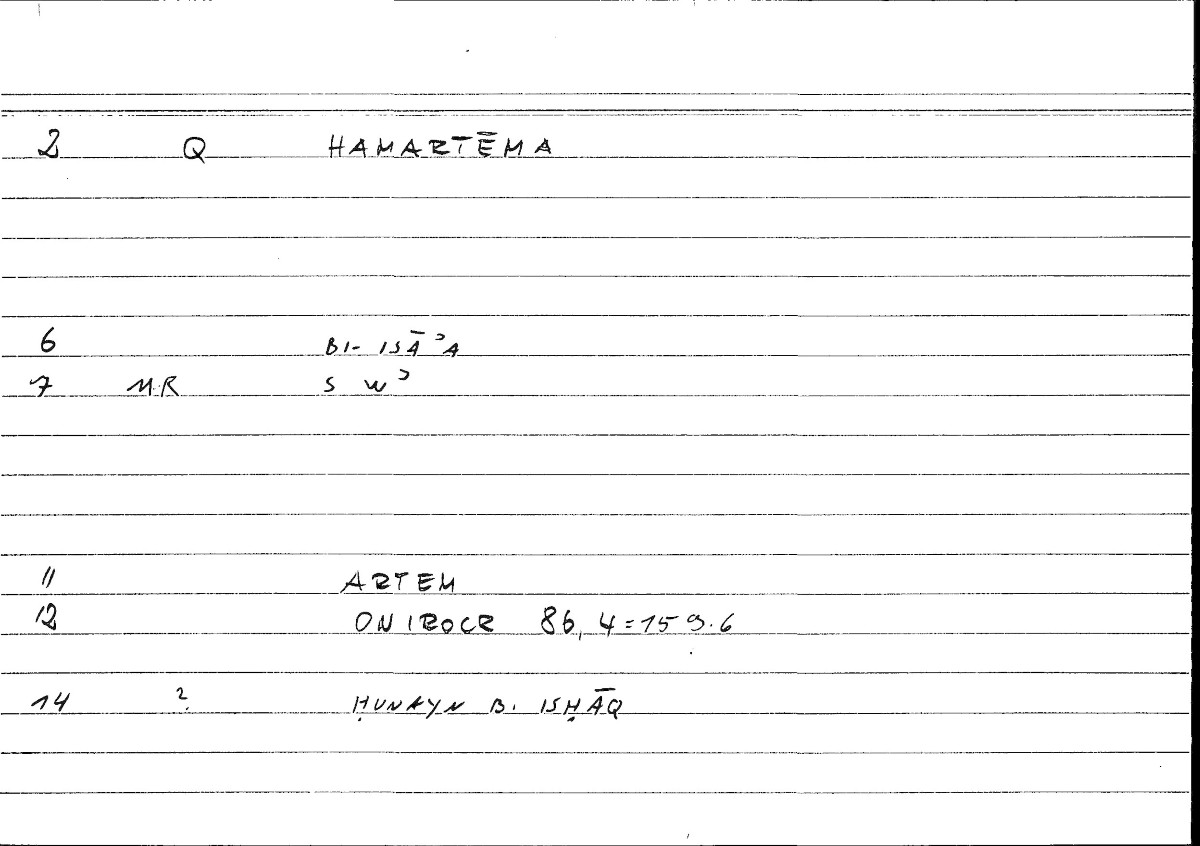 2 Q HAMARTĒMA
6 BI- ISĀʾA
7 MR S Wʾ
11 ARTEM
12 ONIROCR 86, 4 = 159.6
14 ? ḤUNAYN B. ISḤĀQ